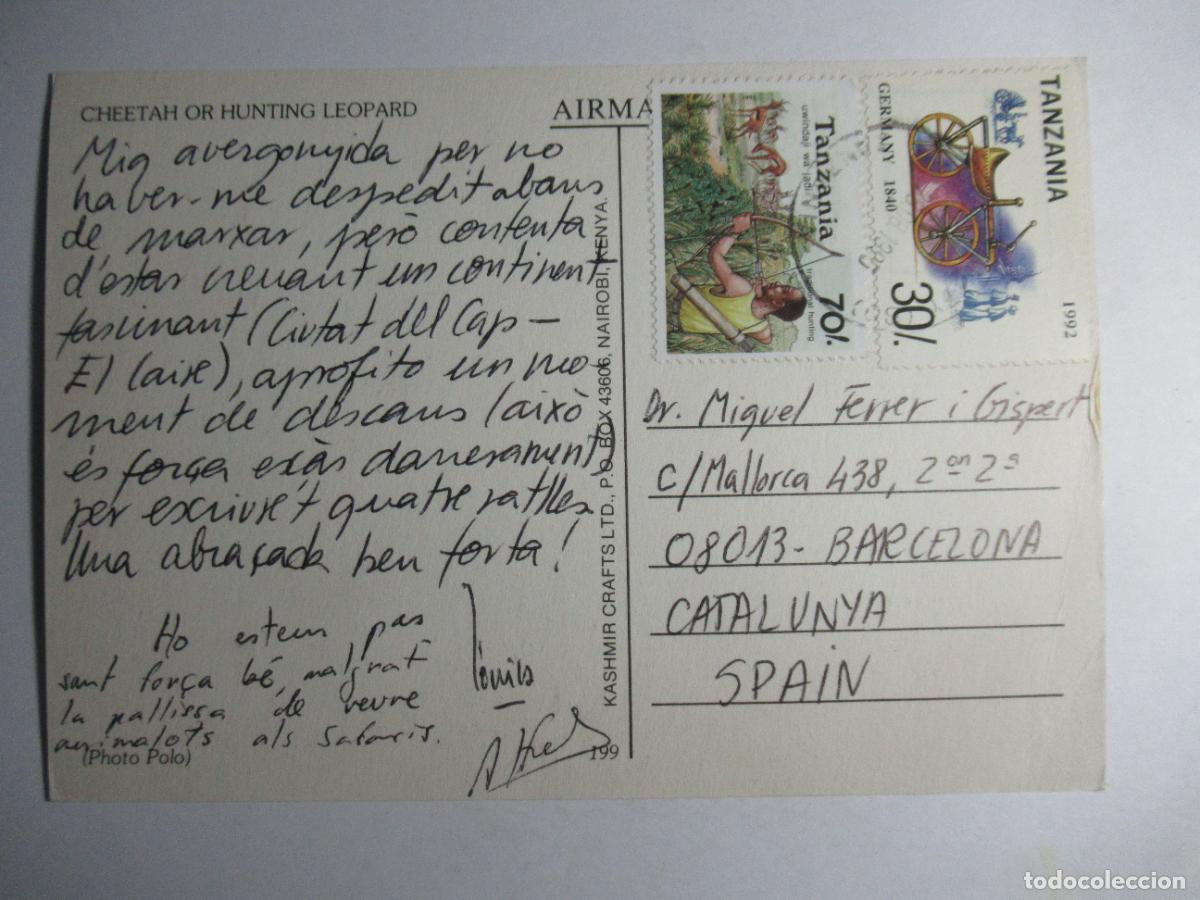 CHEETAH OR HUNTING LEOPARD
AIRMA
Mig avergonyida per no
haver-me despedit abans
de marxar, però contenta
d'estar creuant un continent
fascinant (Ciutat del Cap-
El Caire), aprofito un mo-
ment de descans (això
és força exòtic darrerament)
per escriure't quatre ratlles.
Una abraçada ben forta!
Ho estem pas
sant força bé, malgrat
la pallissa de veure
animalots als safaris.
(Photo Polo)
199
KASHMIR CRAFTS LTD., P.O. BOX 43606, NAIROBI, KENYA.
Tanzania
uwindaji wa jadi
hunting
70/.
TANZANIA
GERMANY 1840
1992
30/.
Dr. Miquel Ferrer i Gispert
C/Mallorca 438, 2on 2a
08013-BARCELONA
CATALUNYA
SPAIN
todocoleccion